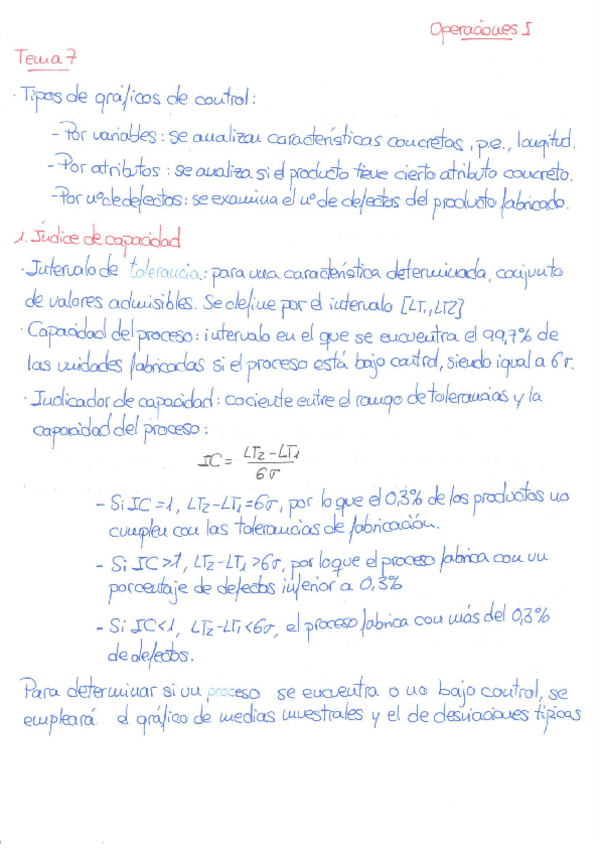 Operaciones I
Tema 7
· Tipos de gráficos de control:
- Por variables: se analizan características concretas, p.e., longitud.
- Por atributos: se analiza si el producto tiene cierto atributo concreto.
- Por nº de defectos: se examina el nº de defectos del producto fabricado.
1. Índice de capacidad
· Intervalo de tolerancia: para una característica determinada, conjunto
de valores admisibles. Se define por el intervalo [LT1, LT2]
· Capacidad del proceso: intervalo en el que se encuentra el 99,7% de
las unidades fabricadas si el proceso está bajo control, siendo igual a 6σ.
· Indicador de capacidad: cociente entre el rango de tolerancias y la
capacidad del proceso:
IC = (LT2 - LT1) / 6σ
- Si IC = 1, LT2 - LT1 = 6σ, por lo que el 0,3% de los productos no
cumplen con las tolerancias de fabricación.
- Si IC > 1, LT2 - LT1 > 6σ, por lo que el proceso fabrica con un
porcentaje de defectos inferior a 0,3%
- Si IC < 1, LT2 - LT1 < 6σ, el proceso fabrica con más del 0,3%
de defectos.
Para determinar si un proceso se encuentra o no bajo control, se
empleará el gráfico de medias muestrales y el de desviaciones típicas